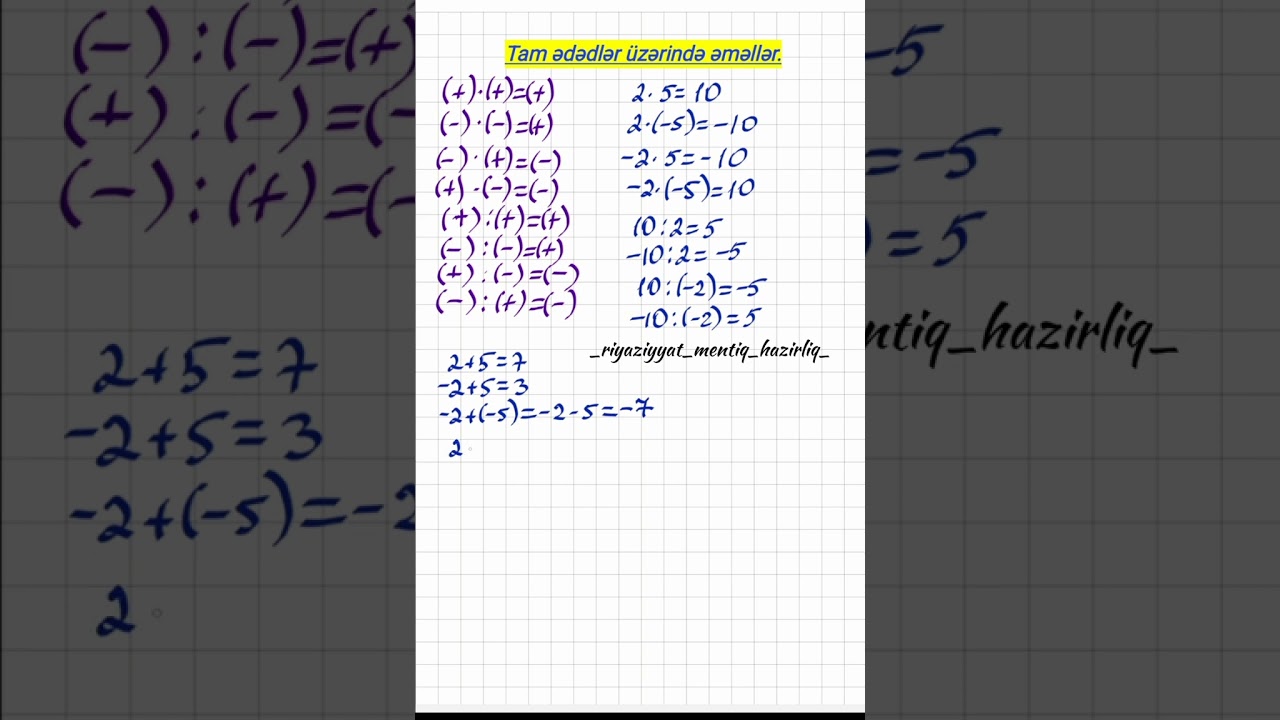 Tam ədədlər üzərində əməllər.
(+)·(+)=(+)
(-)·(-)=(+)
(-)·(+)=(-)
(+)·(-)=(-)
(+):(+)=(+)
(-):(-)=(+)
(+):(-)=(-)
(-):(+)=(-)
2·5=10
2·(-5)=-10
-2·5=-10
-2·(-5)=10
10:2=5
-10:2=-5
10:(-2)=-5
-10:(-2)=5
_riyaziyyat_mentiq_hazirliq_
2+5=7
-2+5=3
-2+(-5)=-2-5=-7
2